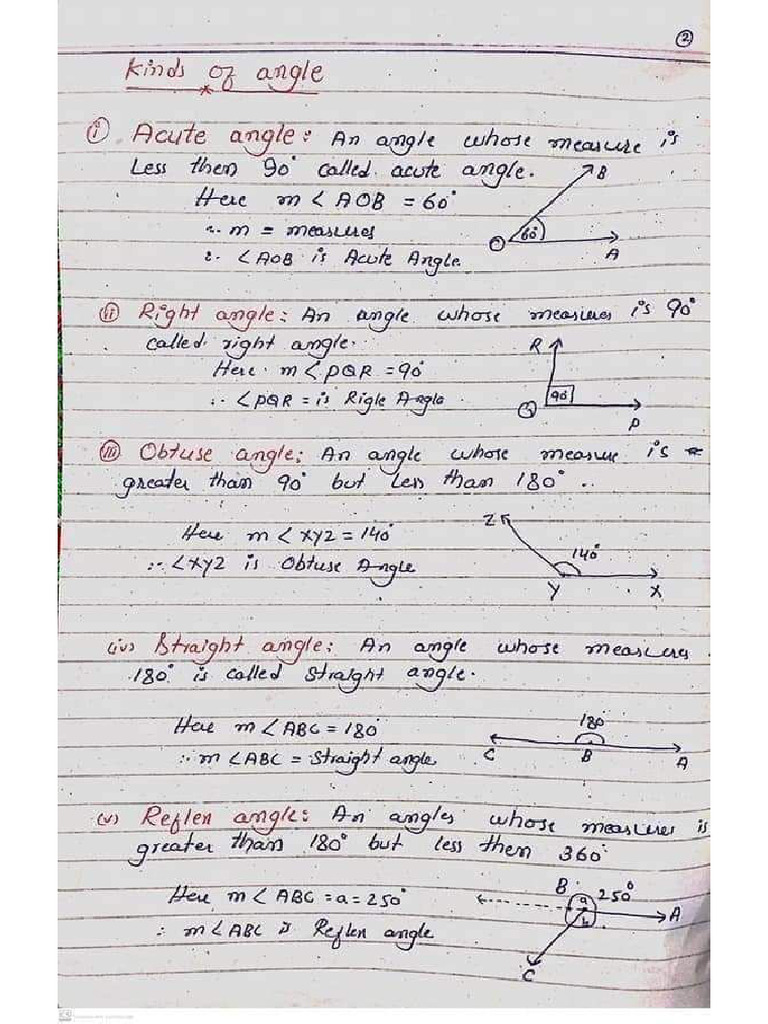 2
Kinds of angle
i Acute angle: An angle whose measure is
Less then 90° called acute angle.
Here m < AOB = 60°
∵ m = measures
∴ <AOB is Acute Angle
B
60°
O
A
ii Right angle: An angle whose measures is 90°
called right angle.
Here m <PQR = 90°
∴ <PQR = is Rigle Angle
R
90°
Q
P
iii Obtuse angle: An angle whose measure is
greater than 90° but Less than 180°..
Here m < XYZ = 140°
∴ <XYZ is Obtuse Angle
Z
140°
Y
X
(iv) Straight angle: An angle whose measures
180° is called Straight angle.
Here m <ABC = 180°
∴ m <ABC = Straight angle
180°
C
B
A
(v) Reflen angle: An angles whose measures is
greater than 180° but less them 360°
Here m < ABC = a = 250°
∴ m <ABC is Reflen angle
B
a
250°
b
A
C